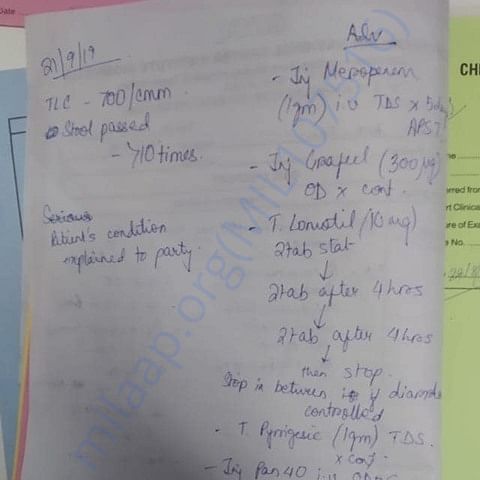 21/9/19
TLC - 700/cmm
Stool passed
- >10 times.
Serious
Patient's condition
explained to party.
Adv
- Inj Meropenem
(1gm) i.v TDS x 5day
APST
- Inj Grafeel (300 µg)
OD x cont.
- T. Lomotil (10 mg)
2 tab stat
↓
2 tab after 4 hrs
↓
2 tab after 4 hrs
↓
then stop.
Stop in between if diarrhoea
controlled
- T. Pyrigesic (1gm) TDS.
x cont
- Inj Pan 40 i.v
milaap.org
CH
erred from
rt Clinica
ure of Exa
No.